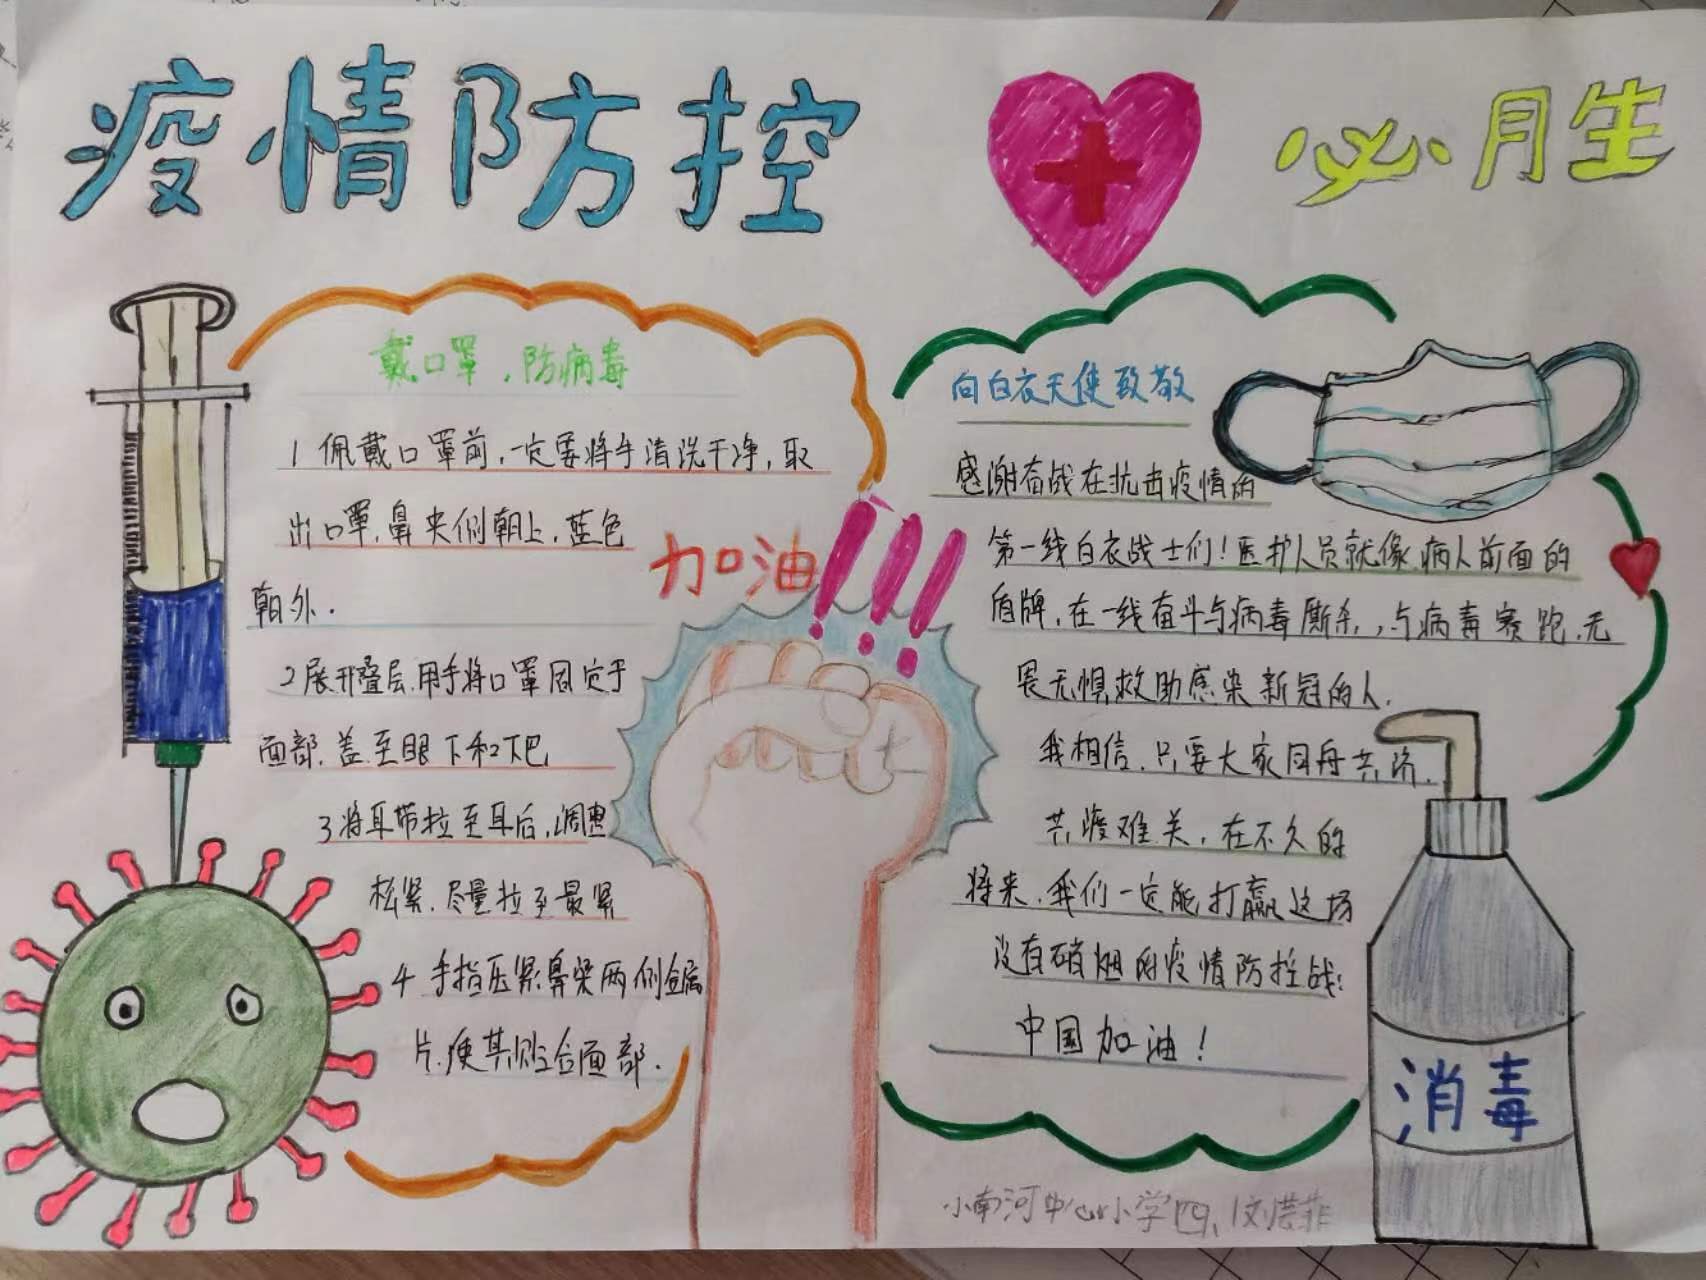 疫情防控
必胜
戴口罩，防病毒
1 佩戴口罩前，一定要将手清洗干净，取
出口罩，鼻夹侧朝上，蓝色
朝外．
2展开叠层，用手将口罩固定于
面部，盖至眼下和下巴
3将耳带拉至耳后，调整
松紧，尽量拉至最紧
4 手指压紧鼻梁两侧金属
片，使其贴合面部．
加油!!!
向白衣天使致敬
感谢奋战在抗击疫情的
第一线白衣战士们！医护人员就像病人前面的
盾牌，在一线奋斗与病毒厮杀，与病毒赛跑，无
畏无惧救助感染新冠的人．
我相信，只要大家同舟共济．
共渡难关，在不久的
将来，我们一定能打赢这场
没有硝烟的疫情防控战：
中国加油！
消毒
小南河中心小学四、1